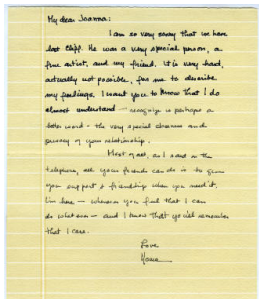 My dear Joanna:
I am so very sorry that we have
lost Cliff. He was a very special person, a
fine artist, and my friend. It is very hard,
actually not possible, for me to describe
my feelings. I want you to know that I do
almost understand - recognize is perhaps a
better word - the very special closeness and
privacy of your relationship.
Most of all, as I said on the
telephone, all your friends can do is to give
you support & friendship when you need it.
I'm here - whenever you feel that I can
do whatever - and I know that you'll remember
that I care.
Love